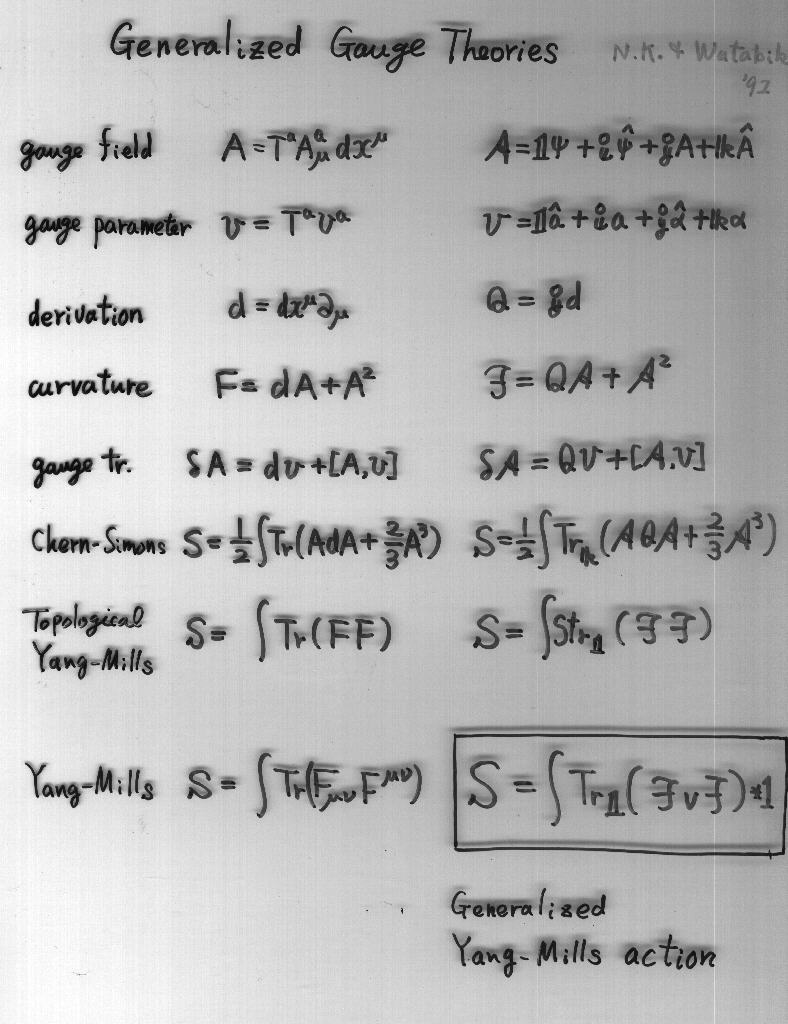 Generalized Gauge Theories N.K. & Watabik
'92
gauge field A = TᵃAᵃ_μ dx^μ 𝒜 = 𝟙ψ + 𝐢ψ̂ + 𝐣A + 𝐤Â
gauge parameter v = Tᵃvᵃ 𝒱 = 𝟙â + 𝐢a + 𝐣α̂ + 𝐤α
derivation d = dx^μ∂_μ Q = 𝐣d
curvature F = dA + A² ℱ = Q𝒜 + 𝒜²
gauge tr. δA = dv + [A,v] δ𝒜 = Q𝒱 + [𝒜.𝒱]
Chern-Simons S = ½∫Tr(AdA + ⅔A³) S = ½∫Tr_𝐤(𝒜Q𝒜 + ⅔𝒜³)
Topological
Yang-Mills S = ∫Tr(FF) S = ∫Str_𝟙(ℱℱ)
Yang-Mills S = ∫Tr(F_μν F^μν) S = ∫Tr_𝟙(ℱ∨ℱ)*1
Generalized
Yang-Mills action